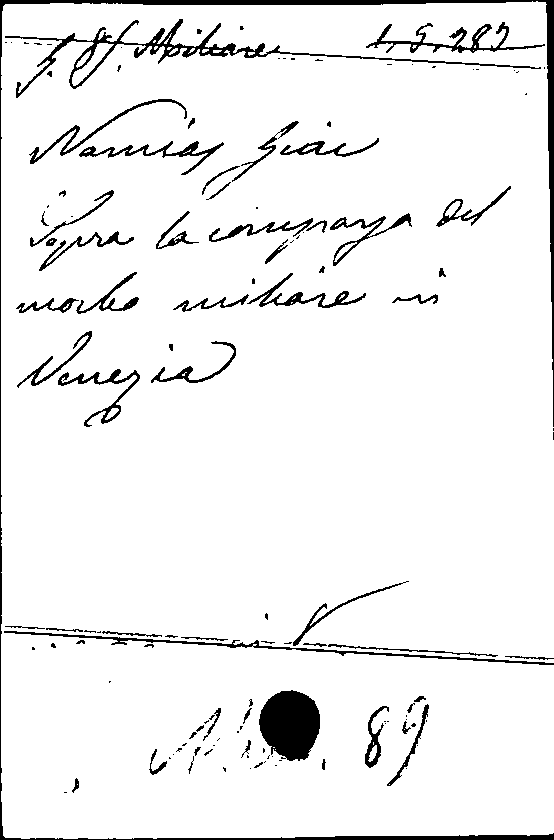 Miliare 1.5.287
Namias Giac
Sopra la comparsa del
morbo miliare in
Venezia
89